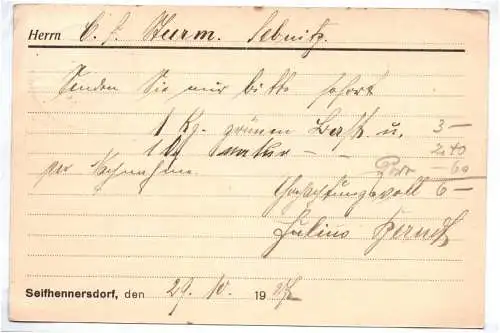 Herrn C. F. Sturm. Sebnitz.
Senden Sie mir bitte sofort
1 Kg. grünen Bast u. 3 —
1 " natur — — 2.40
per Nachnahme. Porto 60
Hochachtungsvoll 6 —
Julius
Seifhennersdorf, den 29. 10. 19